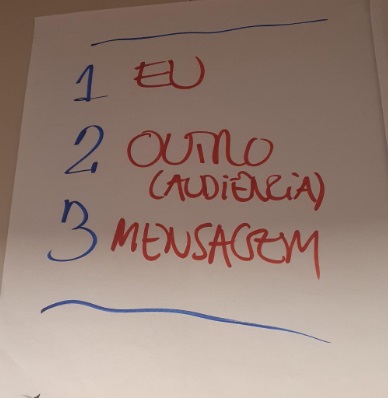 1 EU
2 OUTRO
(AUDIÊNCIA)
3 MENSAGEM